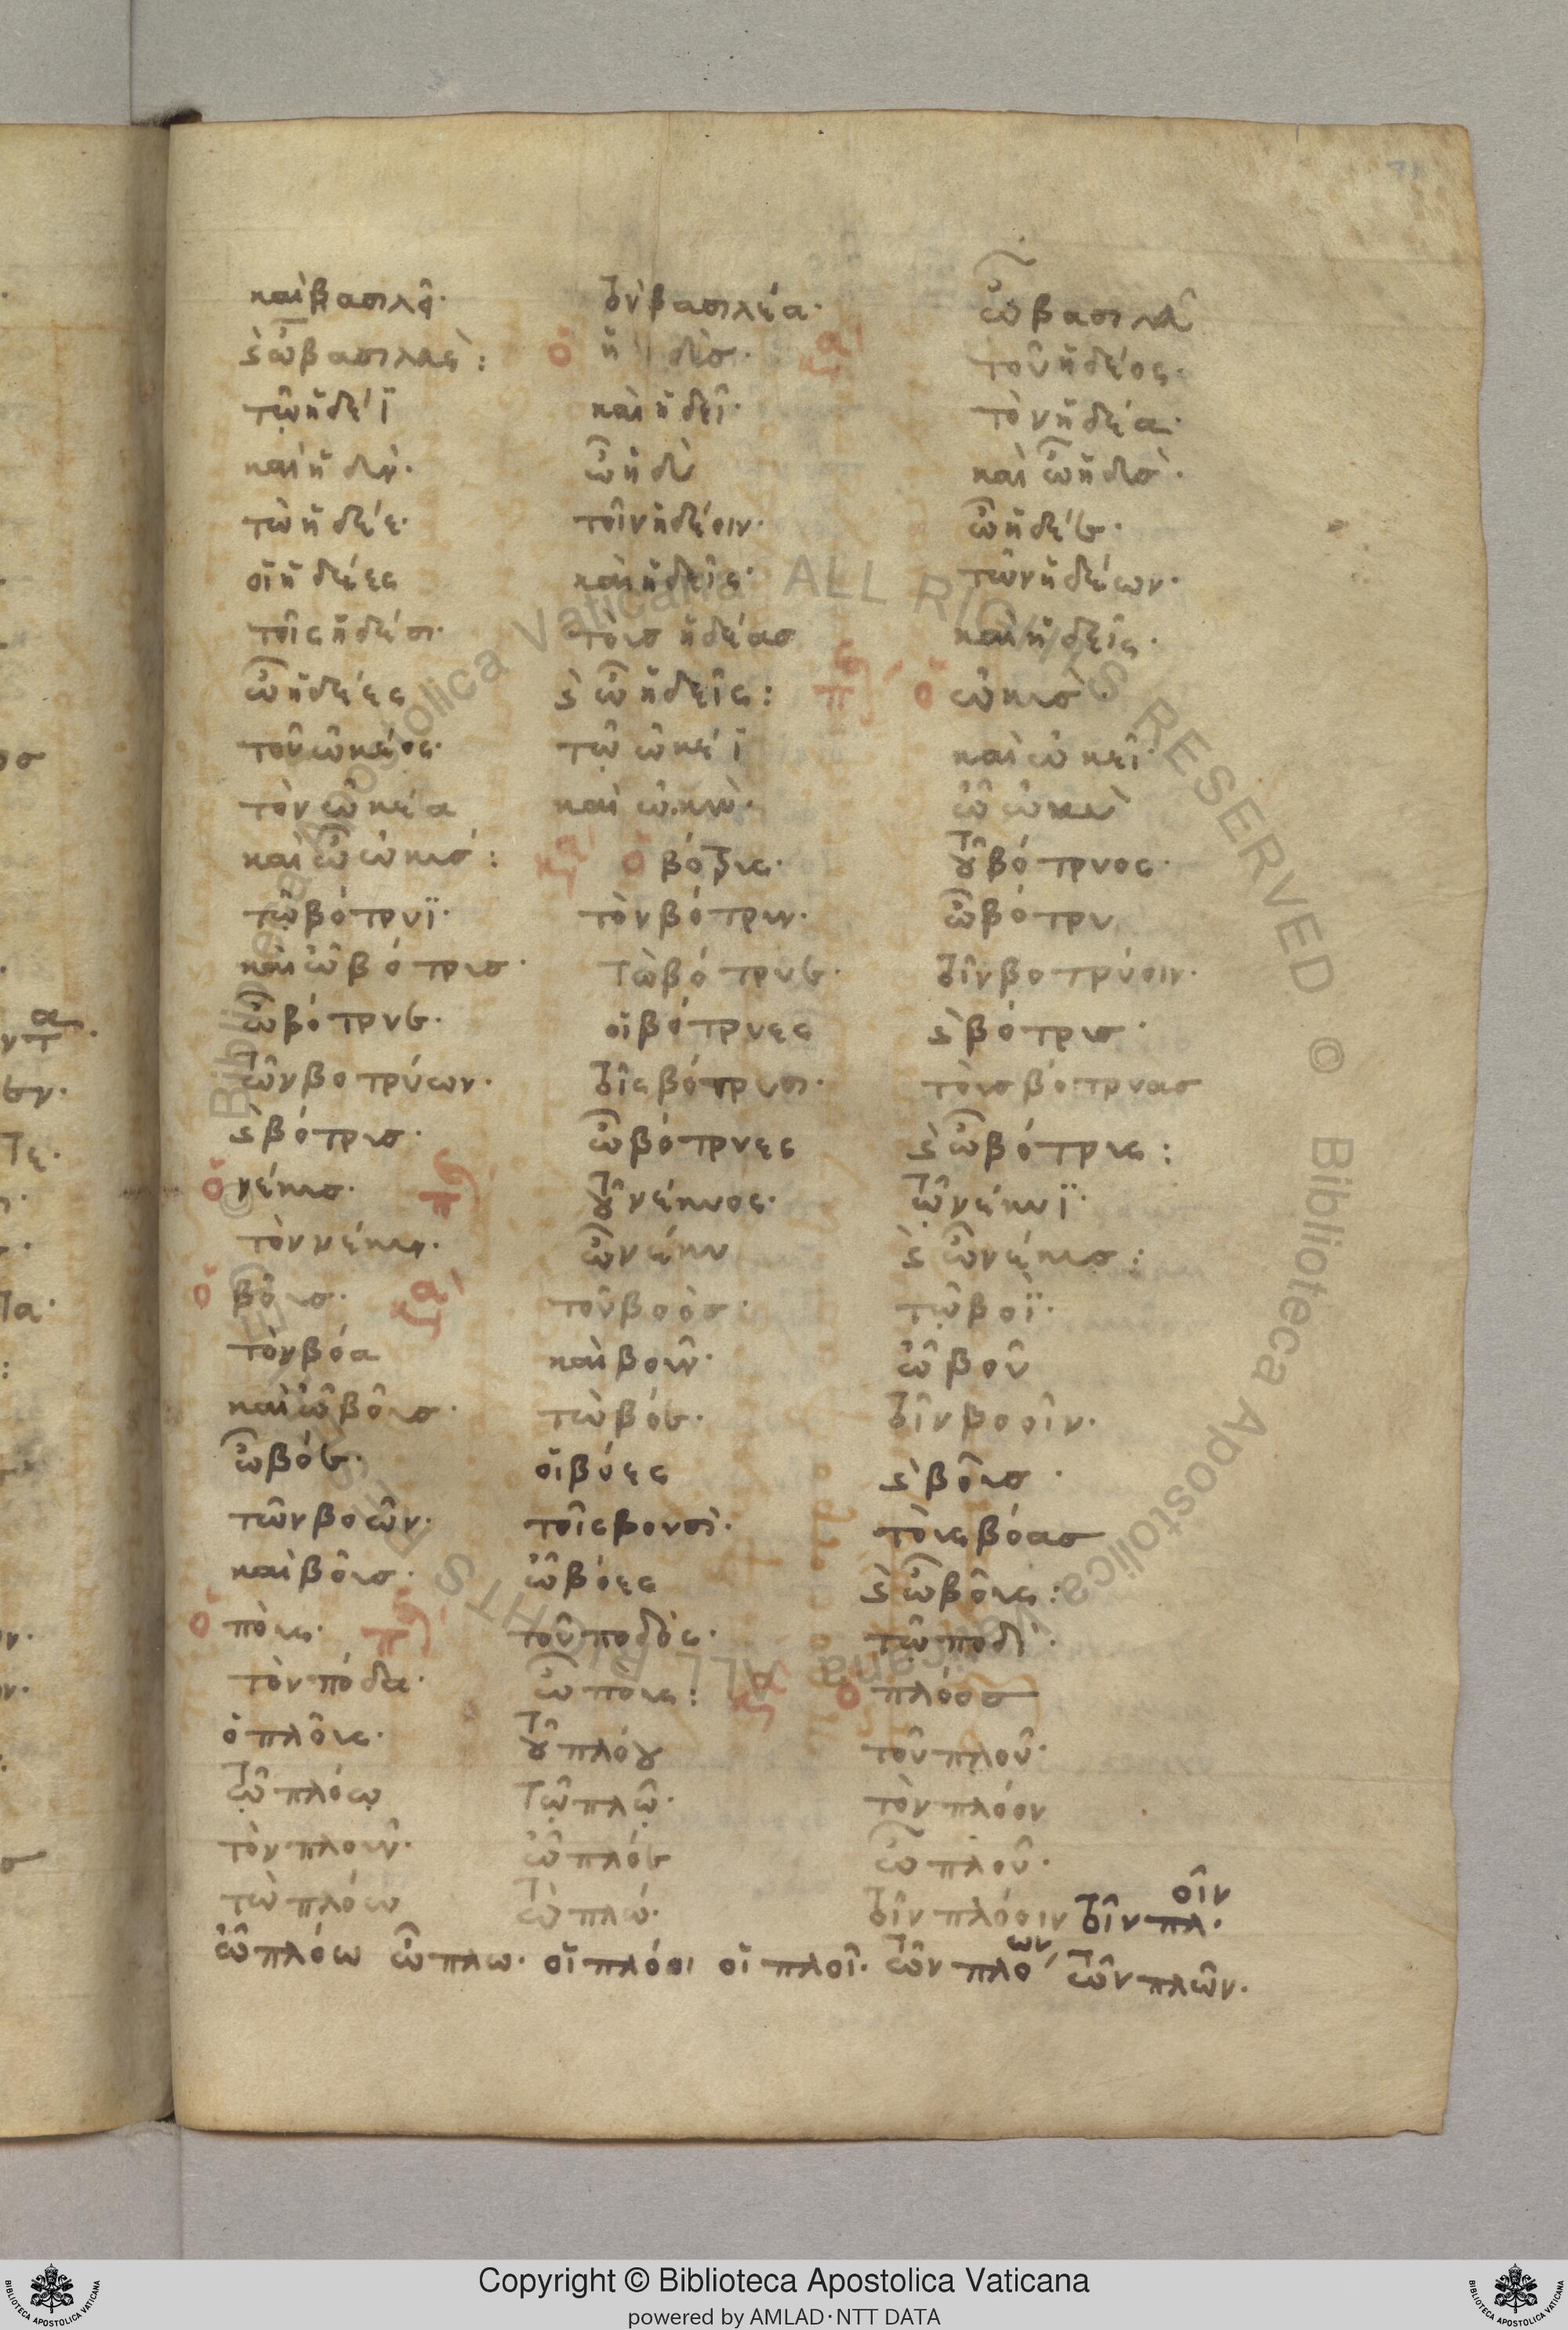 καὶ βασιλῆ· τὸν βασιλέα· ὦ βασιλεῦ
καὶ ὦ βασιλεὺς: ὁ ἡδὺσ· τοῦ ἡδέος·
τῷ ἡδέϊ καὶ ἡδεῖ· τὸν ἡδέα·
καὶ ἡδὺν· ὦ ἡδὺ καὶ ὦ ἡδὺσ·
τὼ ἡδέε· τοῖν ἡδέοιν· ὦ ἡδέε·
οἱ ἡδέες καὶ ἡδεῖς· τῶν ἡδέων·
τοῖς ἡδέσι· τοὺσ ἡδέασ καὶ ἡδεῖς·
ὦ ἡδέες καὶ ὦ ἡδεῖς: ὁ ὠκὺσ·
τοῦ ὠκέος· τῷ ὠκέϊ καὶ ὠκεῖ·
τὸν ὠκέα καὶ ὠκὺν· ὦ ὠκὺ
καὶ ὦ ὠκύσ: ὁ βότρυς· τοῦ βότρυος·
τῷ βότρυϊ· τὸν βότρυν· ὦ βότρυ
καὶ ὦ βότρυσ· τὼ βότρυε· τοῖν βοτρύοιν·
ὦ βότρυε· οἱ βότρυες καὶ βότρυσ·
τῶν βοτρύων· τοῖς βότρυσι· τοὺσ βότρυασ
καὶ βότρυσ· ὦ βότρυες καὶ ὦ βότρυς:
ὁ νέκυσ· τοῦ νέκυος· τῷ νέκυϊ·
τὸν νέκυν· ὦ νέκυ καὶ ὦ νέκυσ:
ὁ βοῦσ· τοῦ βοὸσ· τῷ βοῒ·
τὸν βόα καὶ βοῦν· ὦ βοῦ
καὶ ὦ βοῦσ· τὼ βόε· τοῖν βοοῖν·
ὦ βόε· οἱ βόες καὶ βοῦσ·
τῶν βοῶν· τοῖς βουσὶ· τοὺς βόασ
καὶ βοῦσ· ὦ βόες καὶ ὦ βοῦς:
ὁ ποὺς· τοῦ ποδός· τῷ ποδὶ·
τὸν πόδα· ὦ πους: ὁ πλόοσ
ὁ πλοῦς· τοῦ πλόου τοῦ πλοῦ·
τῷ πλόῳ τῷ πλῷ· τὸν πλόον
τὸν πλοῦν· ὦ πλόε ὦ πλοῦ·
τὼ πλόω τὼ πλώ· τοῖν πλόοιν τοῖν πλοῖν·
ὦ πλόω ὦ πλω· οἱ πλόοι οἱ πλοῖ· τῶν πλόων τῶν πλῶν·
Copyright © Biblioteca Apostolica Vaticana
powered by AMLAD·NTT DATA